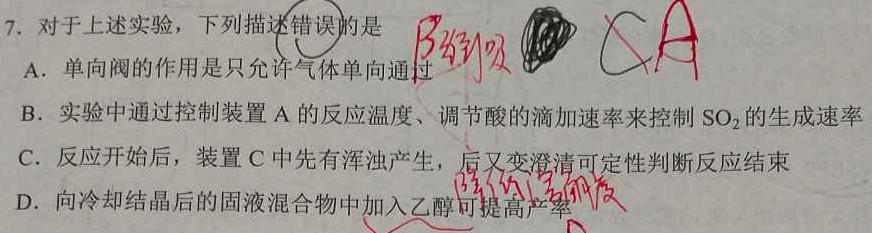 7. 对于上述实验，下列描述错误的是
防倒吸 C A
A. 单向阀的作用是只允许气体单向通过
B. 实验中通过控制装置 A 的反应温度、调节酸的滴加速率来控制 SO₂ 的生成速率
C. 反应开始后，装置 C 中先有浑浊产生，后又变澄清可定性判断反应结束
降低溶解度
D. 向冷却结晶后的固液混合物中加入乙醇可提高产率